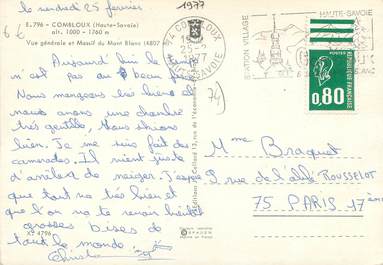 le vendredi 25 février
1977
E.796 - COMBLOUX (Haute-Savoie)
alt. 1000 - 1760 m
Vue générale et Massif du Mont Blanc (4807
74 COMBLOUX
25-2
1977
HTE SAVOIE
STATION VILLAGE
HAUTE-SAVOIE
REPUBLIQUE FRANÇAISE
0,80
74
Aujourd'hui le temps
n'est pas au beau fixe.
Nous mangeons très bien et
nous avons une chambre
très gentille. Nous skions
bien. Je me suis fait des
camarades. Il vient juste
d'arrêter de neiger. J'espère
que tout va très bien et que
l'on va te revoir bientôt
grosses bises à
tout le monde
X. 4796
Mme Braquet
rue de l'abbé ROUSSELOT
75 PARIS 17ème